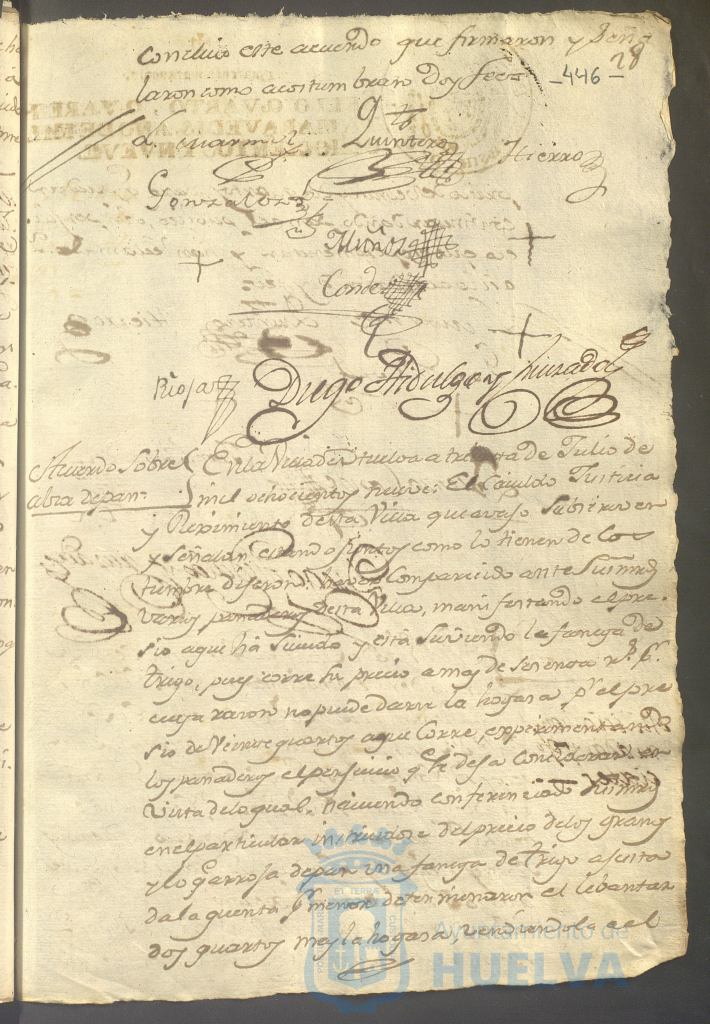 Concluió este acuerdo que firmaron y Seña
28
laron como acostumbran Doy fee
-446-
Quintero
Hierro
Gonzales
Muñoz
Conde
Rioja
Diego Hidalgo y Jurado
Acuerdo sobre
alza de pan
En la Villa de Huelva a treinta de Julio de
mil ochocientos nueve: El Cavildo Justicia
y Reximiento de esta Villa que avajo subscriven
y señalan estando juntos como lo tienen de cos
tumbre dijeron: haver comparecido ante Sus mrds
varios panaderos de esta Villa, manifestando el pre
sio a que ha suvido y está suviendo la fanega de
trigo, pues corre su precio a mas de sesenta rs.
cuya razon no puede darse la hogasa pr. el pre
sio de Veinte quartos a que corre, experimentando
los panaderos el perjuicio q. se desa considerar en
vista de lo qual haviendo conferenciado Sus mrds
en el particular instruidose del precio de los granos
y lo q. arroja de pan una fanega de trigo ajusta
da la quenta pr. menor determinaron el lebantar
dos quartos mas la hogasa, vendiendose el
Ayuntamiento de
HUELVA